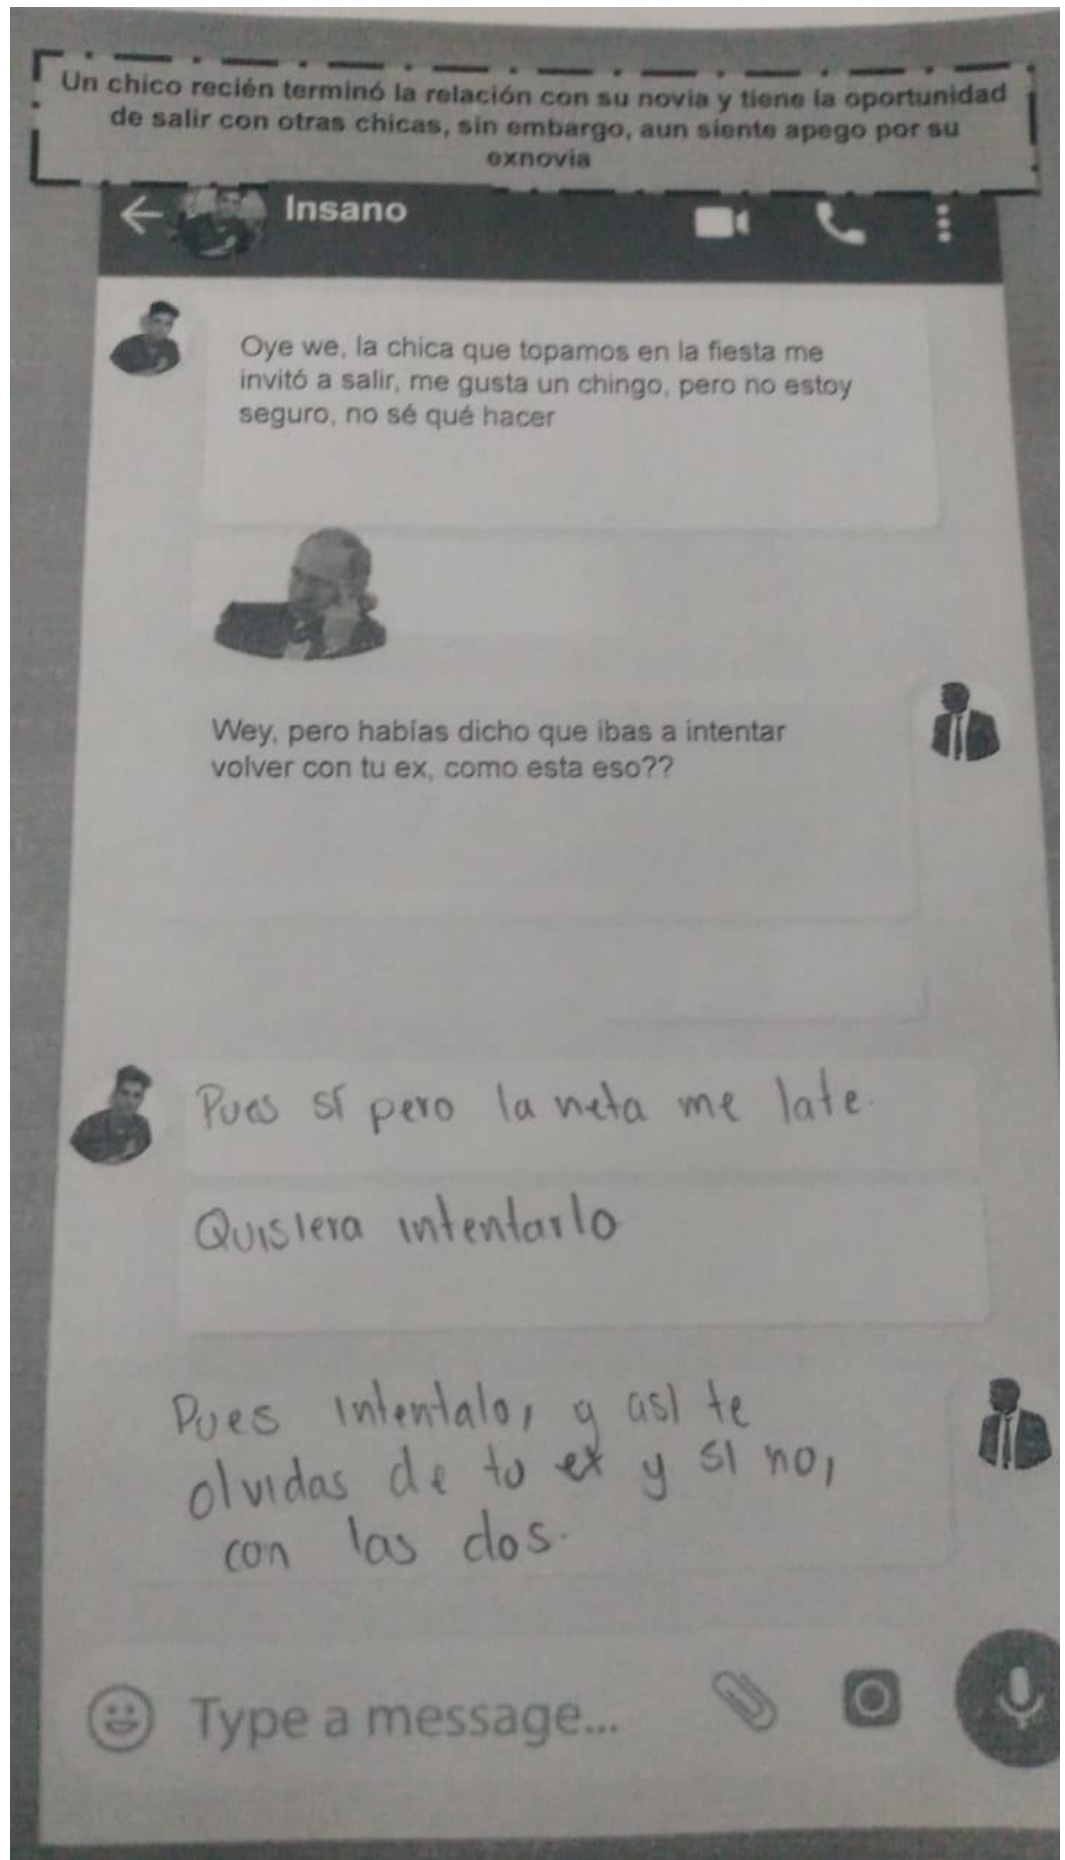 Un chico recién terminó la relación con su novia y tiene la oportunidad
de salir con otras chicas, sin embargo, aun siente apego por su
exnovia
Insano
Oye we, la chica que topamos en la fiesta me
invitó a salir, me gusta un chingo, pero no estoy
seguro, no sé qué hacer
Wey, pero habías dicho que ibas a intentar
volver con tu ex, como esta eso??
Pues sí pero la neta me late.
Quisiera intentarlo
Pues intentalo, y así te
olvidas de tu ex y si no,
con las dos.
Type a message...